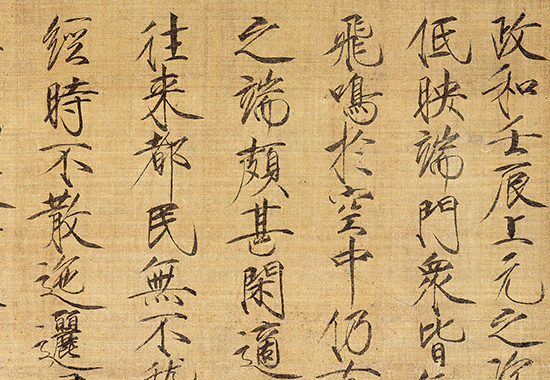 政和壬辰上元之次
低映端門衆皆
飛鳴於空中仍有
之端頗甚閑適
往来都民無不
經時不散迤邐